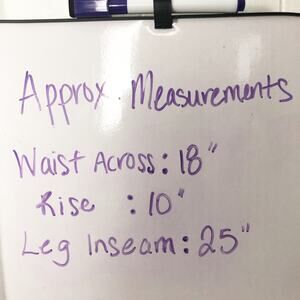 Approx. Measurements
Waist Across: 18"
Rise : 10"
Leg Inseam: 25"